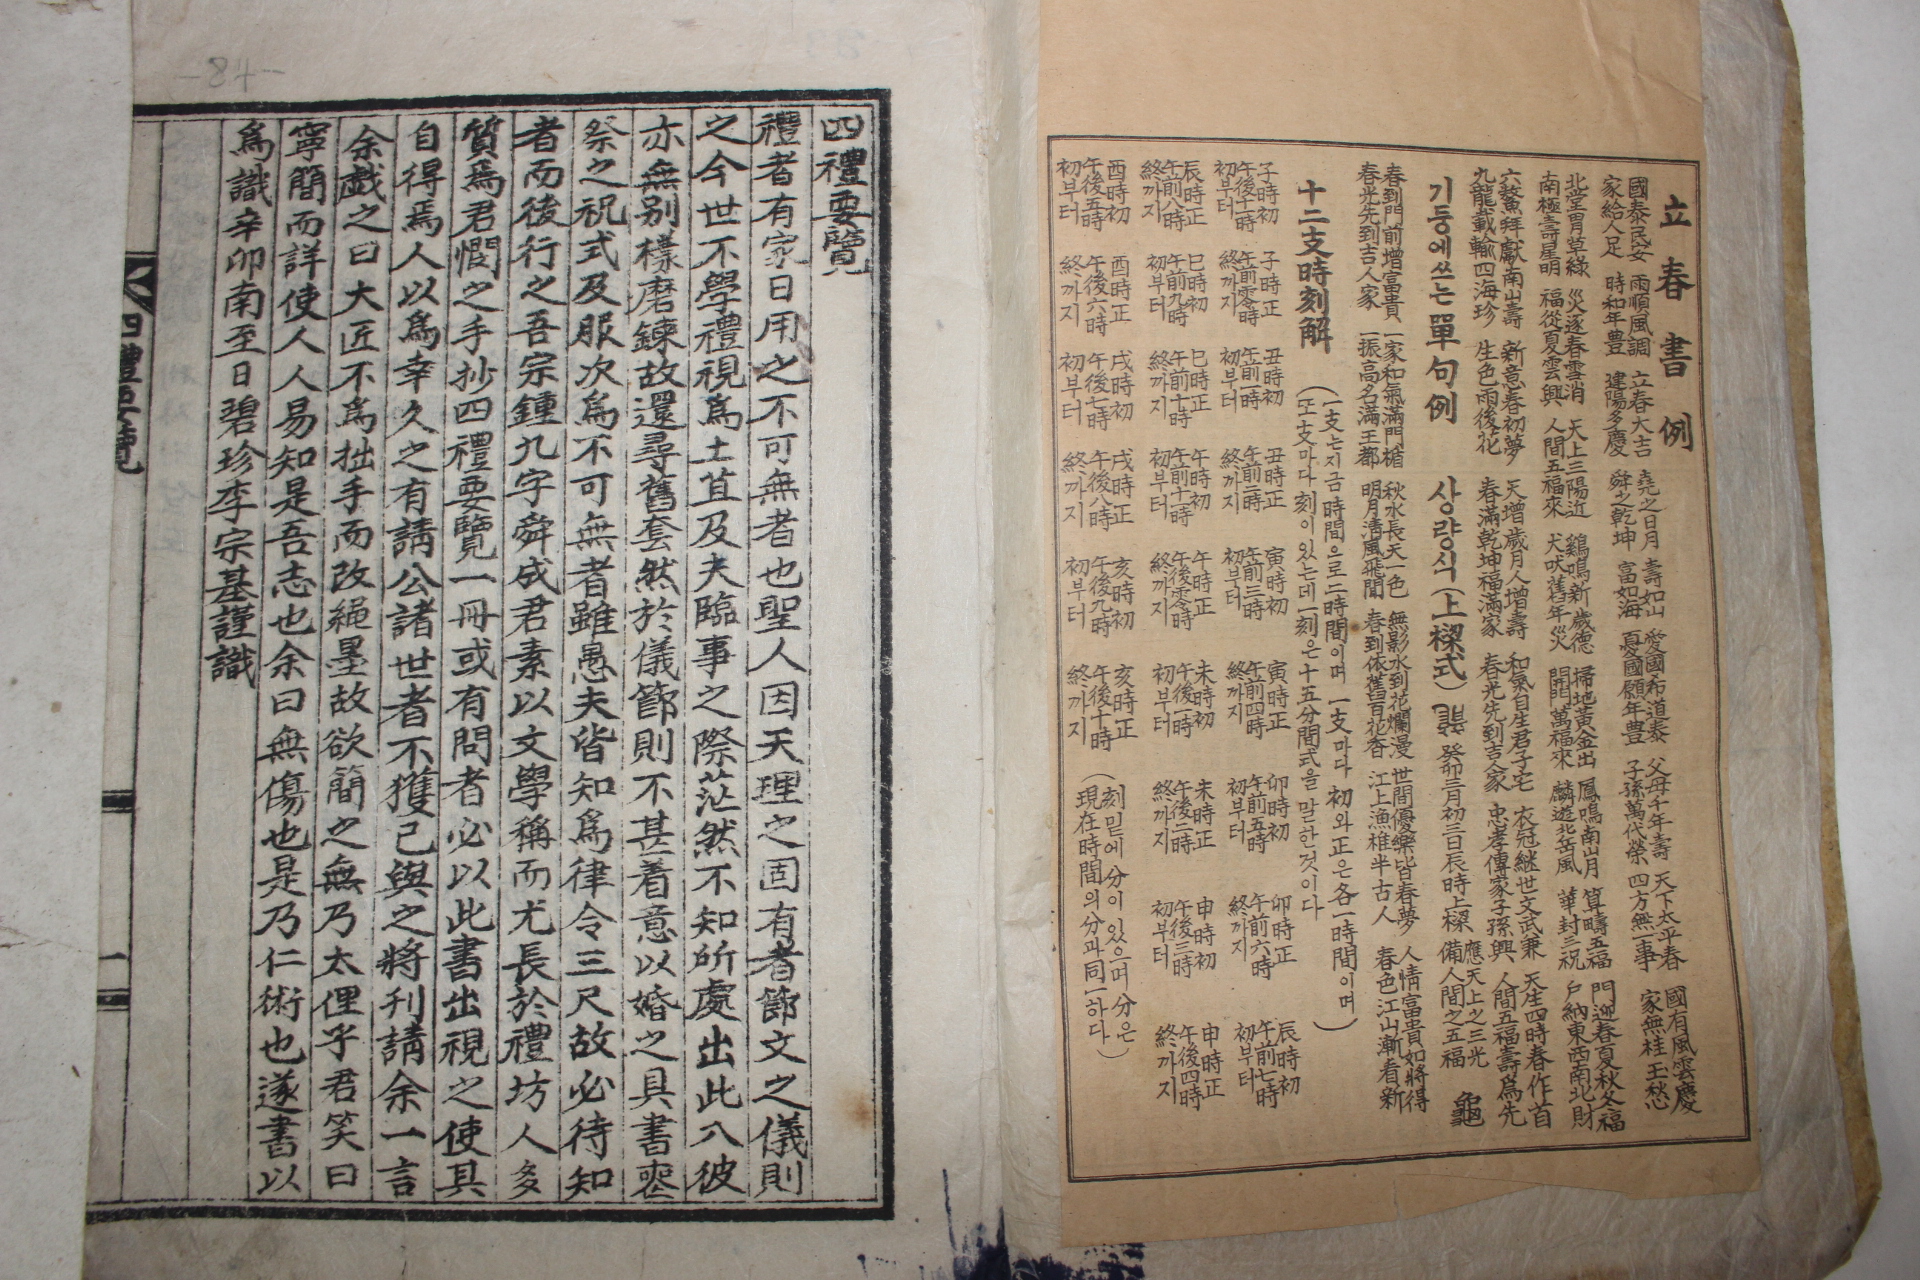 立春書例
國泰民安 家給人足
雨順風調 時和年豊
立春大吉 建陽多慶
堯之日月 舜之乾坤
壽如山 富如海
愛國希道泰 憂國願年豊
父母千年壽 子孫萬代榮
天下太平春 四方無一事
國有風雲慶 家無桂玉愁
北堂萱草綠 南極壽星明
災逐春雪消 福從夏雲興
天上三陽近 人間五福來
鷄鳴新歲德 犬吠舊年災
掃地黃金出 開門萬福來
鳳鳴南山月 麟遊北岳風
算疇五福 華封三祝
門迎春夏秋冬福 戶納東西南北財
六鰲拜獻南山壽 九龍載輸四海珍
新意春初夢 生色雨後花
天增歲月人增壽 春滿乾坤福滿家
和氣自生君子宅 春光先到吉人家
衣冠繼世文武兼 忠孝傳家子孫興
天生四時春作首 人間五福壽爲先
기둥에쓰는單句例
春到門前增富貴 春光先到吉人家
一家和氣滿門楣 一振高名滿王都
秋水長天一色 明月淸風飛閒
無影水到花爛漫 春到依舊百花香
世間優樂皆春夢 江上漁樵半古人
人情富貴如將得 春色江山漸看新
상량식(上樑式)
龍 癸卯三月初三日辰時上樑 應天上之三光 備人間之五福 龜
十二支時刻解
(一支는지금時間으로二時間이며 一支마다 初와正은各一時間이며
(또支마다刻이있는데一刻은十五分間式을말한것이다
子時初 午後十一時 初부터
子時正 午前零時 終까지
丑時初 午前一時 初부터
丑時正 午前二時 終까지
寅時初 午前三時 初부터
寅時正 午前四時 終까지
卯時初 午前五時 初부터
卯時正 午前六時 終까지
辰時初 午前七時 初부터
辰時正 午前八時 終까지
巳時初 午前九時 初부터
巳時正 午前十時 終까지
午時初 午前十一時 初부터
午時正 午後零時 終까지
未時初 午後一時 初부터
未時正 午後二時 終까지
申時初 午後三時 初부터
申時正 午後四時 終까지
酉時初 午後五時 初부터
酉時正 午後六時 終까지
戌時初 午後七時 初부터
戌時正 午後八時 終까지
亥時初 午後九時 初부터
亥時正 午後十時 終까지
(刻밑에 分이있으며分은
現在時間의分과同一하다)
四禮要覽
禮者有家日用之不可無者也聖人因天理之固有者節文之儀則
之今世不學禮視爲土苴及夫臨事之際茫然不知所處出此八彼
亦無別樣磨鍊故還尋舊套然於儀節則不甚着意以婚之具書喪
祭之祝式及服次爲不可無者雖愚夫皆知爲律令三尺故必待知
者而後行之吾宗鍾九字舜成君素以文學稱而尤長於禮坊人多
質焉君憫之手抄四禮要覽一冊或有問者必以此書出視之使其
自得焉人以爲幸久之有請公諸世者不獲已與之將刊請余一言
余戱之曰大匠不爲拙手而改繩墨故欲簡之無乃太俚乎君笑曰
寧簡而詳使人人易知是吾志也余曰無傷也是乃仁術也遂書以
爲識辛卯南至日碧珍李宗基謹識
四禮要覽
一
-48-